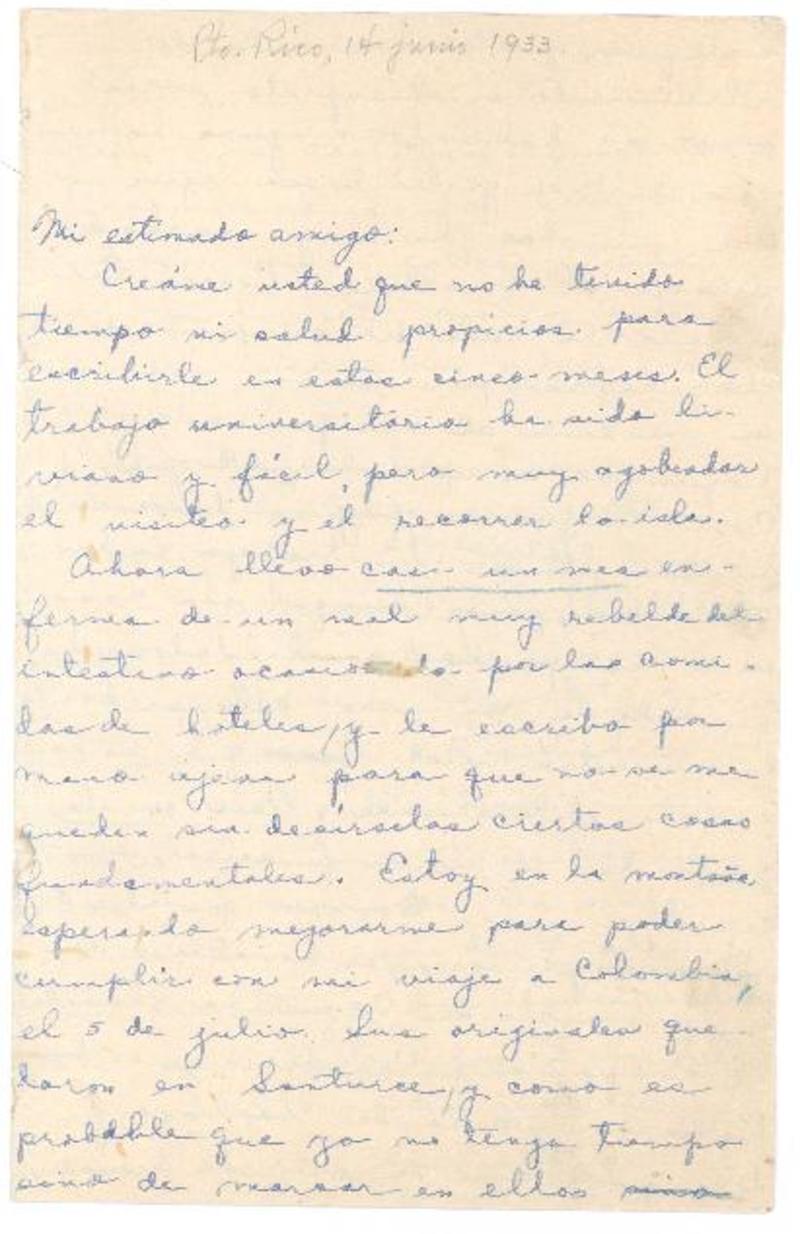 Pto. Rico, 14 junio 1933.
Mi estimado amigo:
Creáme usted que no he tenido
tiempo ni salud propicios para
escribirle en estos cinco meses. El
trabajo universitário ha sido li-
viano y fácil, pero muy agobiador
el visiteo y el recorrer la isla.
Ahora llevo casi un mes en-
ferma de un mal muy rebelde del
intestino ocasionado por las comi-
das de hoteles, y le escribo por
mano ajena para que no se me
queden sin desírselas ciertas cosas
fundamentales. Estoy en la montaña
esperando mejorarme para poder
cumplir con mi viaje a Colombia,
el 5 de julio. Sus originales que-
daron en Santurce, y como es
probable que yo no tenga tiempo
sino de marcar en ellos sino